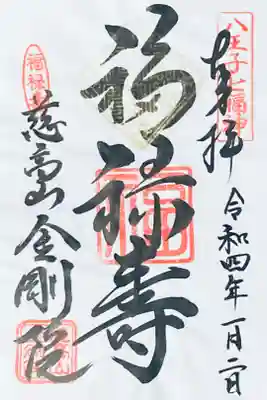 八王子七福神
奉拝
令和四年一月二日
福禄寿
福禄寿
慈高山金剛院